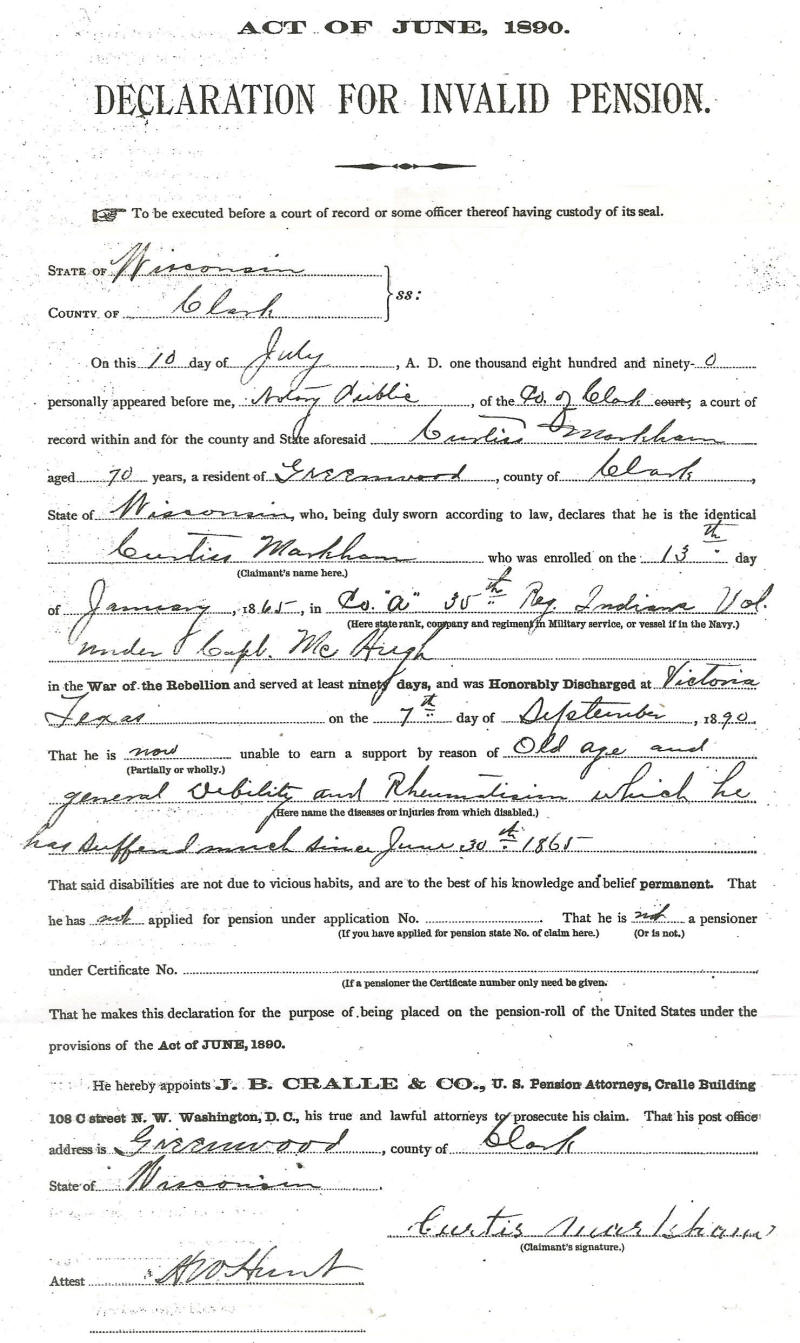 ACT OF JUNE, 1890.
DECLARATION FOR INVALID PENSION.
To be executed before a court of record or some officer thereof having custody of its seal.
STATE OF Wisconsin
COUNTY OF Clark
ss:
On this 10 day of July, A. D. one thousand eight hundred and ninety-0
personally appeared before me, Notary Public, of the Co. of Clark court; a court of
record within and for the county and State aforesaid Curtiss Markham
aged 70 years, a resident of Greenwood, county of Clark,
State of Wisconsin, who, being duly sworn according to law, declares that he is the identical
Curtiss Markham who was enrolled on the 13th day
(Claimant's name here.)
of January, 1865, in Co. "A" 35th Reg. Indiana Vol.
(Here state rank, company and regiment in Military service, or vessel if in the Navy.)
under Capt. Mc Hugh
in the War of the Rebellion and served at least ninety days, and was Honorably Discharged at Victoria
Texas on the 7th day of September, 1890
That he is now unable to earn a support by reason of Old age and
(Partially or wholly.)
general Debility and Rheumatisim which he
(Here name the diseases or injuries from which disabled.)
has suffered much since June 30th 1865
That said disabilities are not due to vicious habits, and are to the best of his knowledge and belief permanent. That
he has not applied for pension under application No. . That he is not a pensioner
(If you have applied for pension state No. of claim here.) (Or is not.)
under Certificate No.
(If a pensioner the Certificate number only need be given.
That he makes this declaration for the purpose of being placed on the pension-roll of the United States under the
provisions of the Act of JUNE, 1890.
He hereby appoints J. B. CRALLE & CO., U. S. Pension Attorneys, Cralle Building
108 C street N. W. Washington, D. C., his true and lawful attorneys to prosecute his claim. That his post office
address is Greenwood, county of Clark
State of Wisconsin.
Curtis Markham
(Claimant's signature.)
Attest H W Hunt